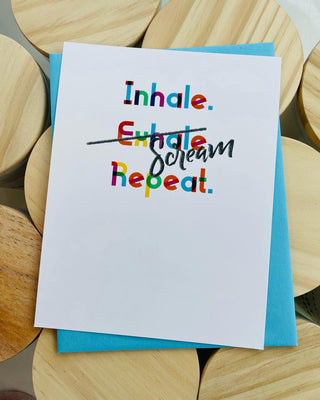 Inhale.
Exhale
Scream
Repeat.